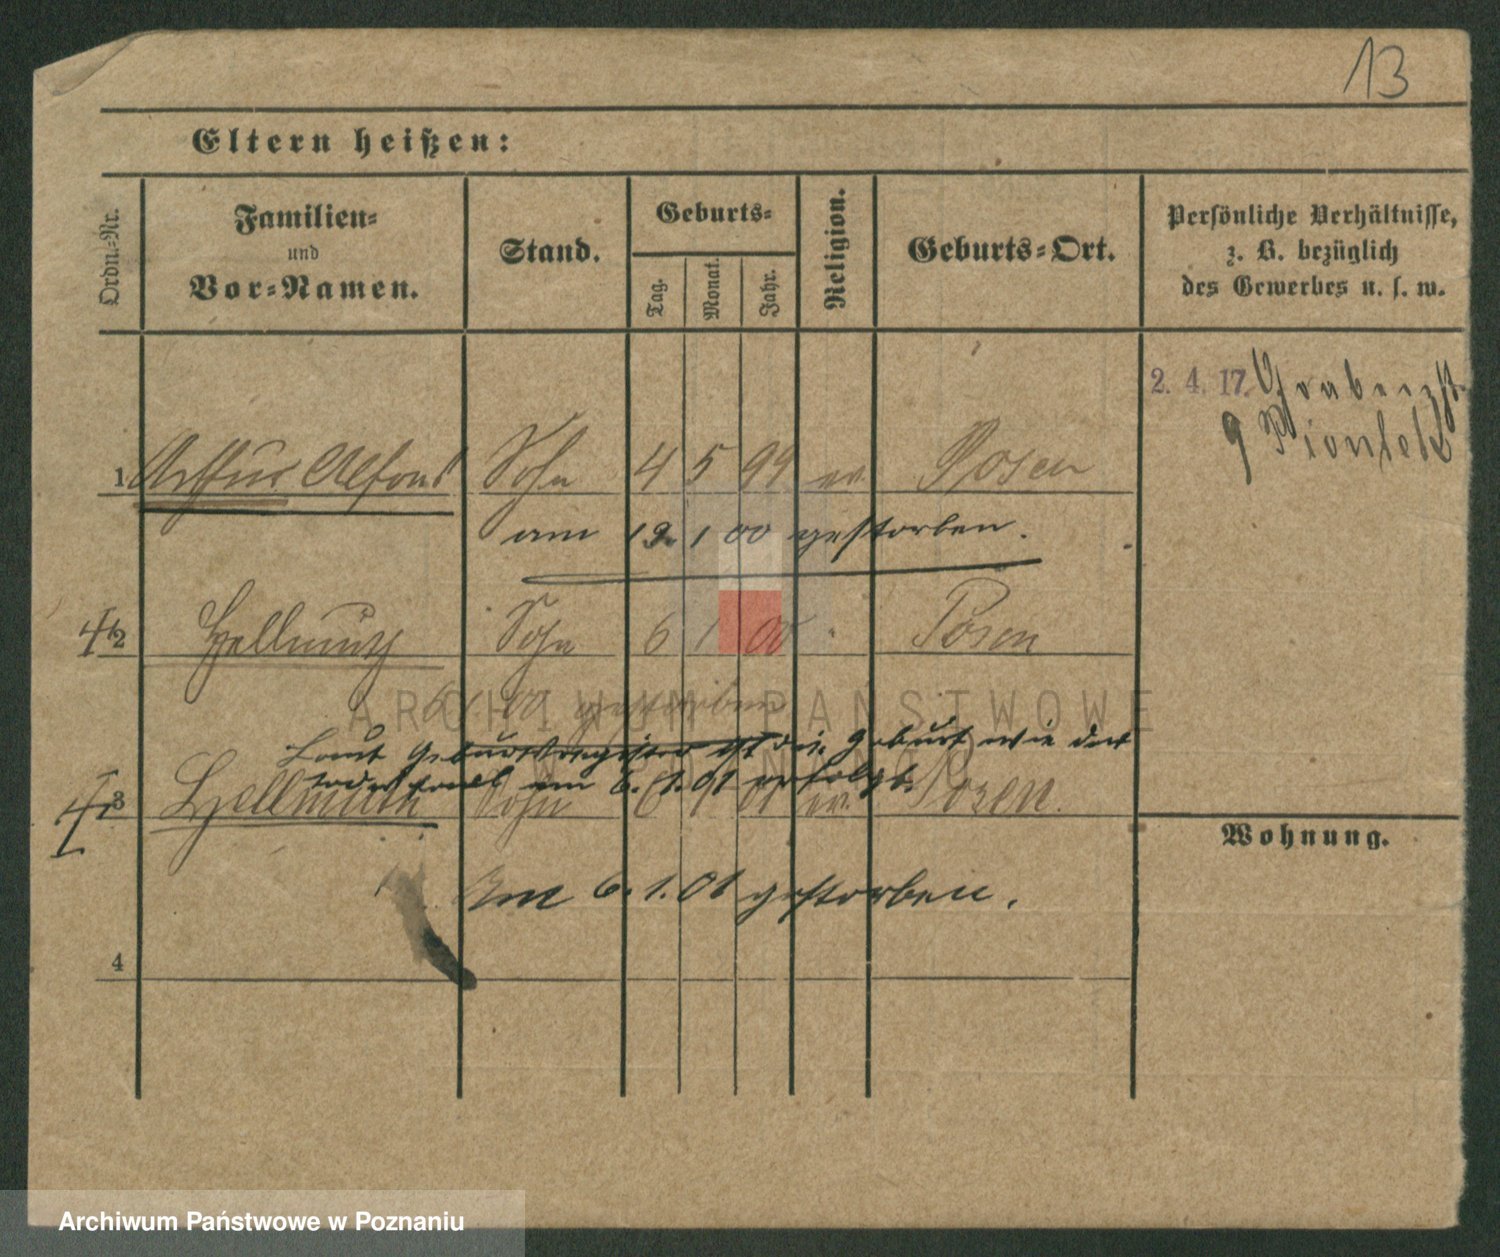 13
Eltern heißen:
Ordn.-Nr.
Familien-
und
Vor-Namen.
Stand.
Geburts-
Tag.
Monat.
Jahr.
Religion.
Geburts-Ort.
Persönliche Verhältnisse,
z. B. bezüglich
des Gewerbes u. s. w.
2. 4. 17. Grabenst.
9
1 Arthur Alfons Sohn 4 5 99 ev. Posen
am 19. 1 00 gestorben.
2 Hellmuth Sohn 6 1 00 " Posen
6 1 00 gestorben
ARCHIWUM PAŃSTWOWE
W POZNANIU
Laut Geburtsregister ist die Geburt wie der
Todesfall am 6.1.01 erfolgt.
3 Hellmuth Sohn 6 1 01 ev. Posen.
Wohnung.
Am 6.1.01 gestorben.
4
Archiwum Państwowe w Poznaniu